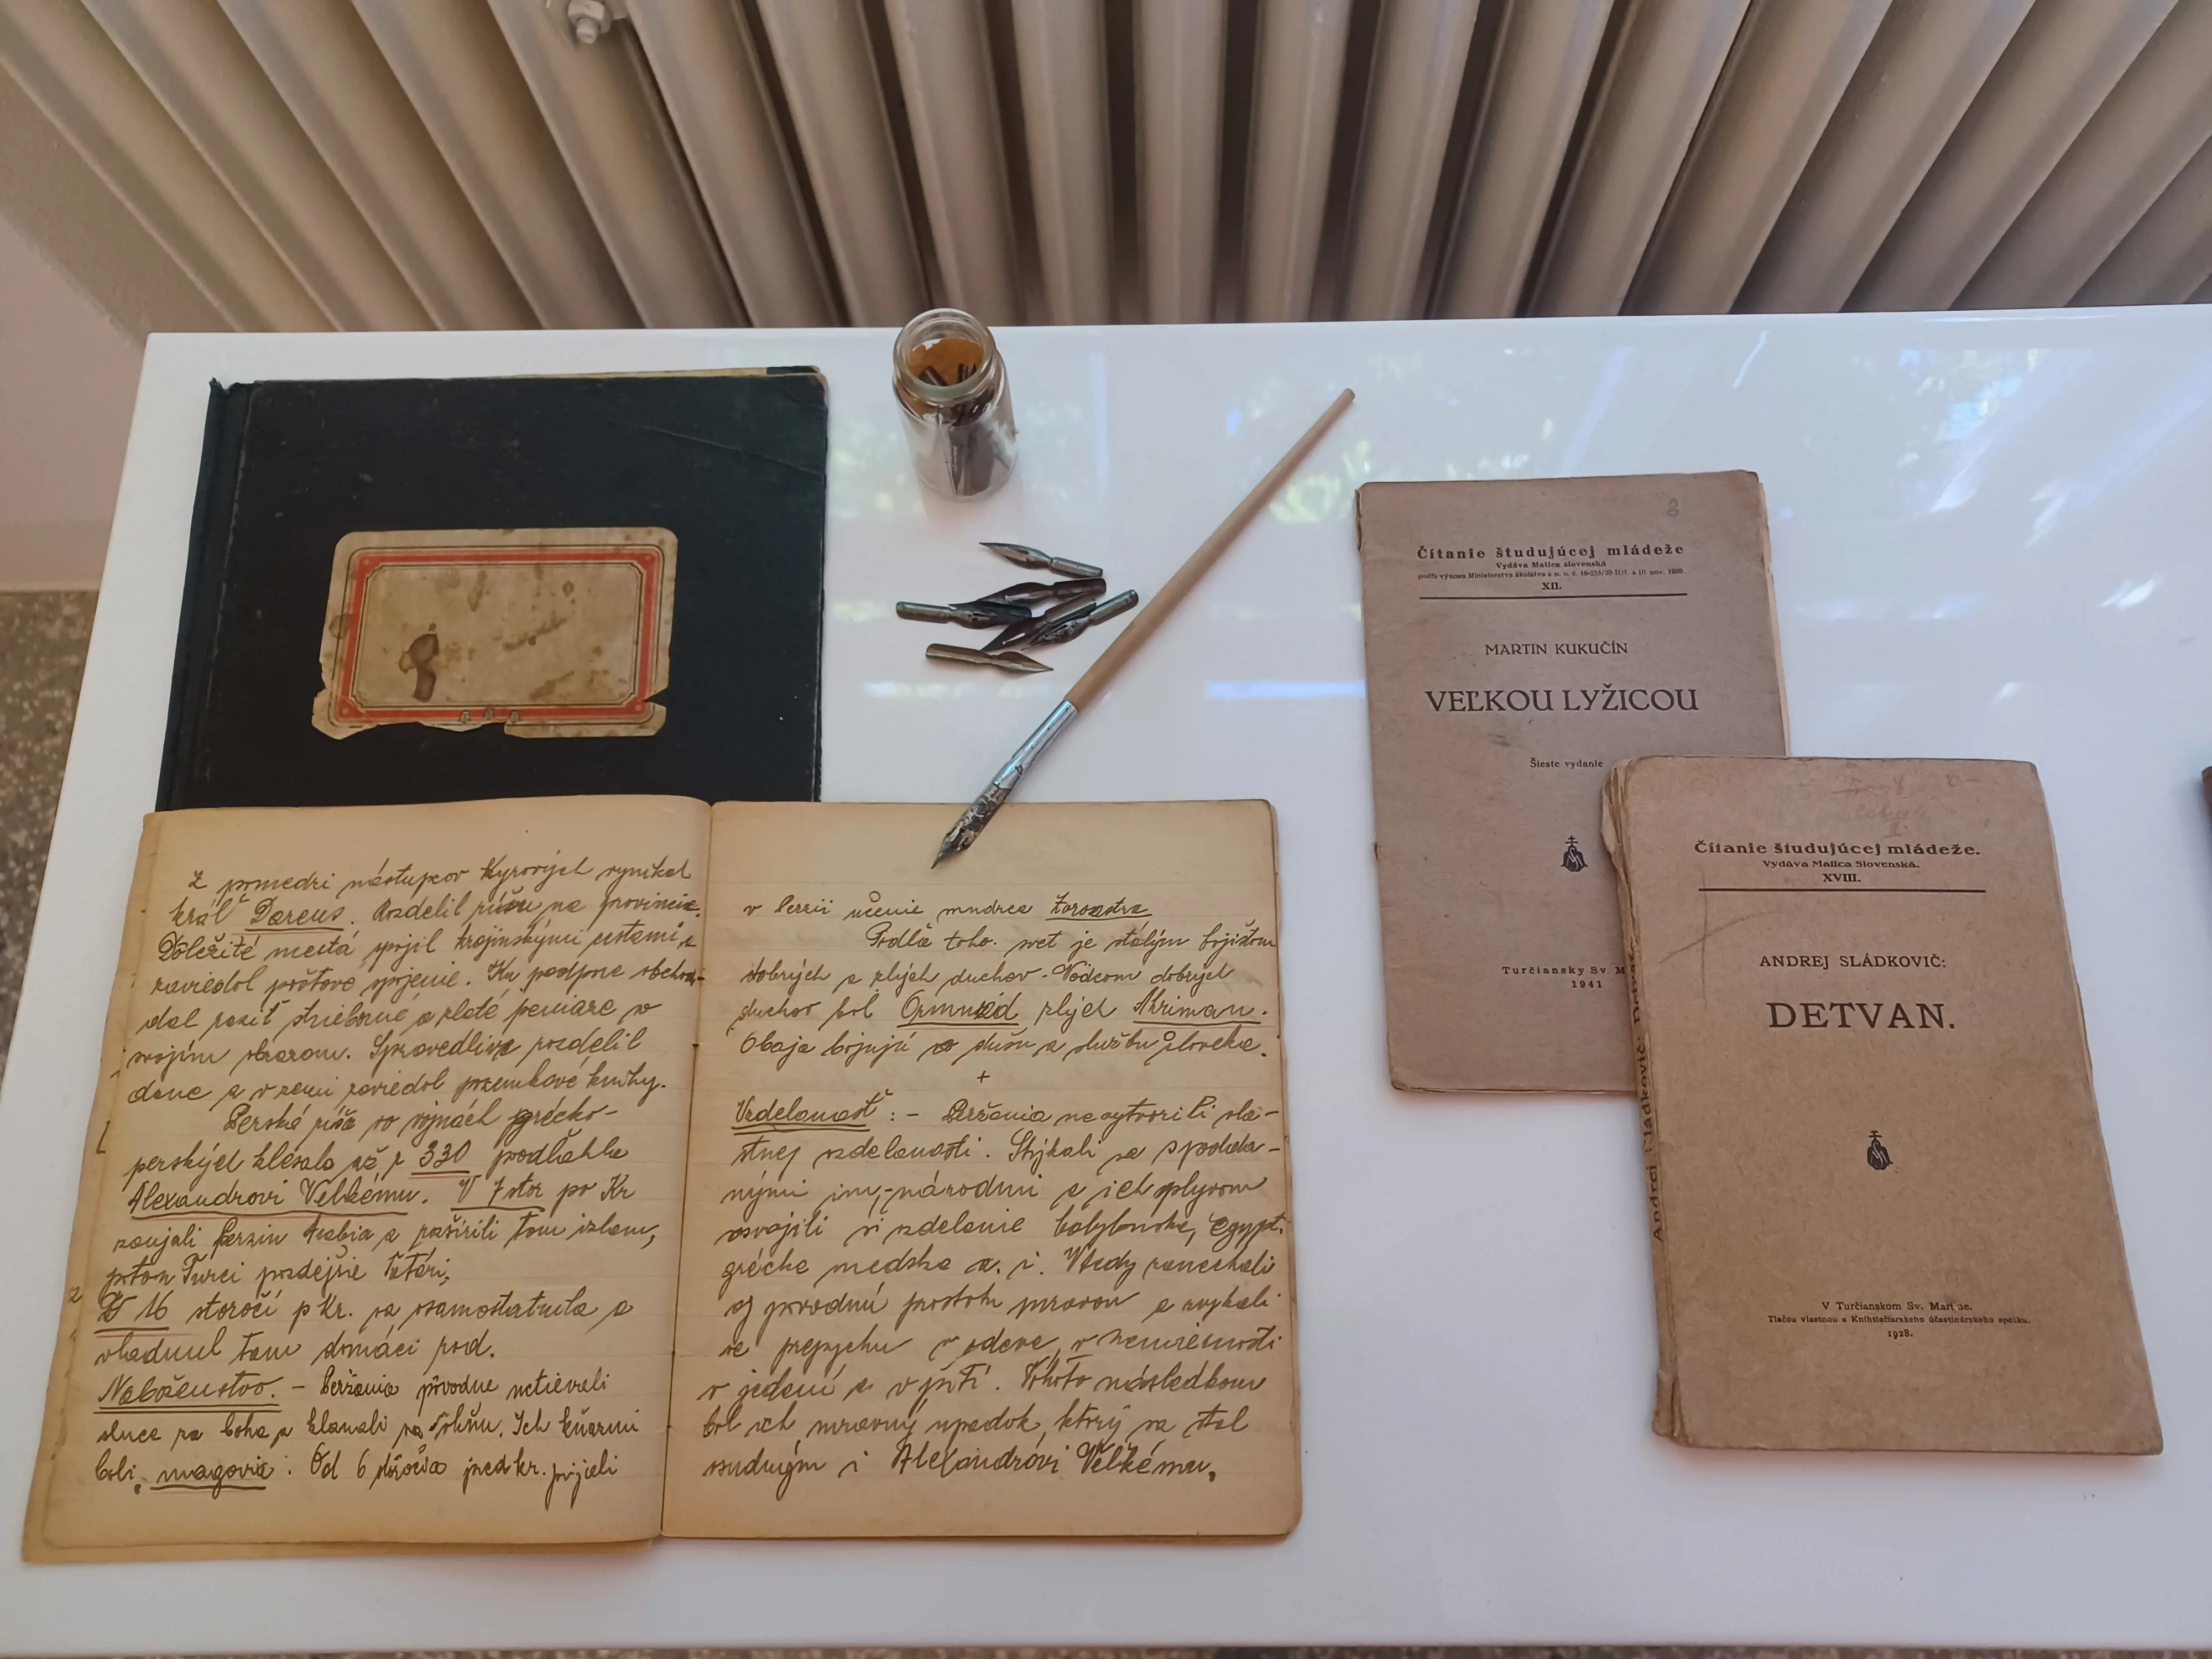 Z pomedzi nástupcov Kyrových vynikol
kráľ Dareus. Rozdelil ríšu na provincie.
Dôležité mestá spojil krajinskými cestami a
zaviedol poštové spojenie. Na podporu obcho-
du dal raziť strieborné a zlaté peniaze so
svojím obrazom. Spravedlive rozdelil
dane a v zemi zaviedol pozemkové knihy.
Perská ríša vo vojnách grécko-
perských klesala až r 330 podľahla
Alexandrovi Veľkému. V 7 stor po Kr
zaujali Perziu Arabia a rozšírili tam izlam,
potom Turci pozdejšie Tatári,
V 16 storočí p Kr. sa osamostatnila a
vládnul tam domáci rod.
Náboženstvo. – Peržania pôvodne uctievali
slnce za boha a klanali sa ohňu. Ich kňazmi
boli magovia. Od 6 storočia pred kr. prijali
v Perzii učenie mudrca Zoroastra
Podľa toho svet je stálym bojišťom
dobrých a zlých duchov. Vodcom dobrých
duchov bol Ormuzd zlých Ahriman.
Obaja bojujú o dušu a službu človeka.
+
Vzdelanosť: – Peržania nevytvorili vla-
stnej vzdelanosti. Stýkali sa s podda-
nými in. národmi a ich vplyvom
osvojili si vzdelanie babylonske, egypt.
grécke medske a. i. Vtedy zanechali
aj pôvodnú prostotu mravov a zvykali
na prepychu v odeve, v nemiernosti
v jedení a v pití. Tohoto následkom
bol ich mravný úpadok, ktorý sa stal
osudným i Alexandrovi Veľkému.
8
Čítanie študujúcej mládeže
Vydáva Matica slovenská
podľa výnosu Ministerstva školstva a n. o. č. 16-235/39-II/1. z 10. nov. 1939.
XII.
MARTIN KUKUČÍN
VEĽKOU LYŽICOU
Šieste vydanie
Turčiansky Sv. M
1941
Čítanie študujúcej mládeže.
Vydáva Matica Slovenská.
XVIII.
ANDREJ SLÁDKOVIČ:
DETVAN.
V Turčianskom Sv. Martine.
Tlačou vlastnou a Knihtlačiarskeho účastinárskeho spolku.
1928.
Andrej Sládkovič: Detvan